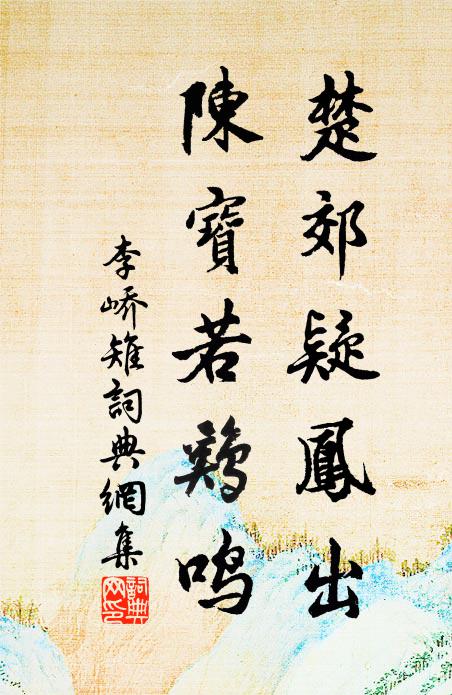 楚郊疑鳳出
陳寶若鷄鳴
李峤雉詞典網集
詞典网印